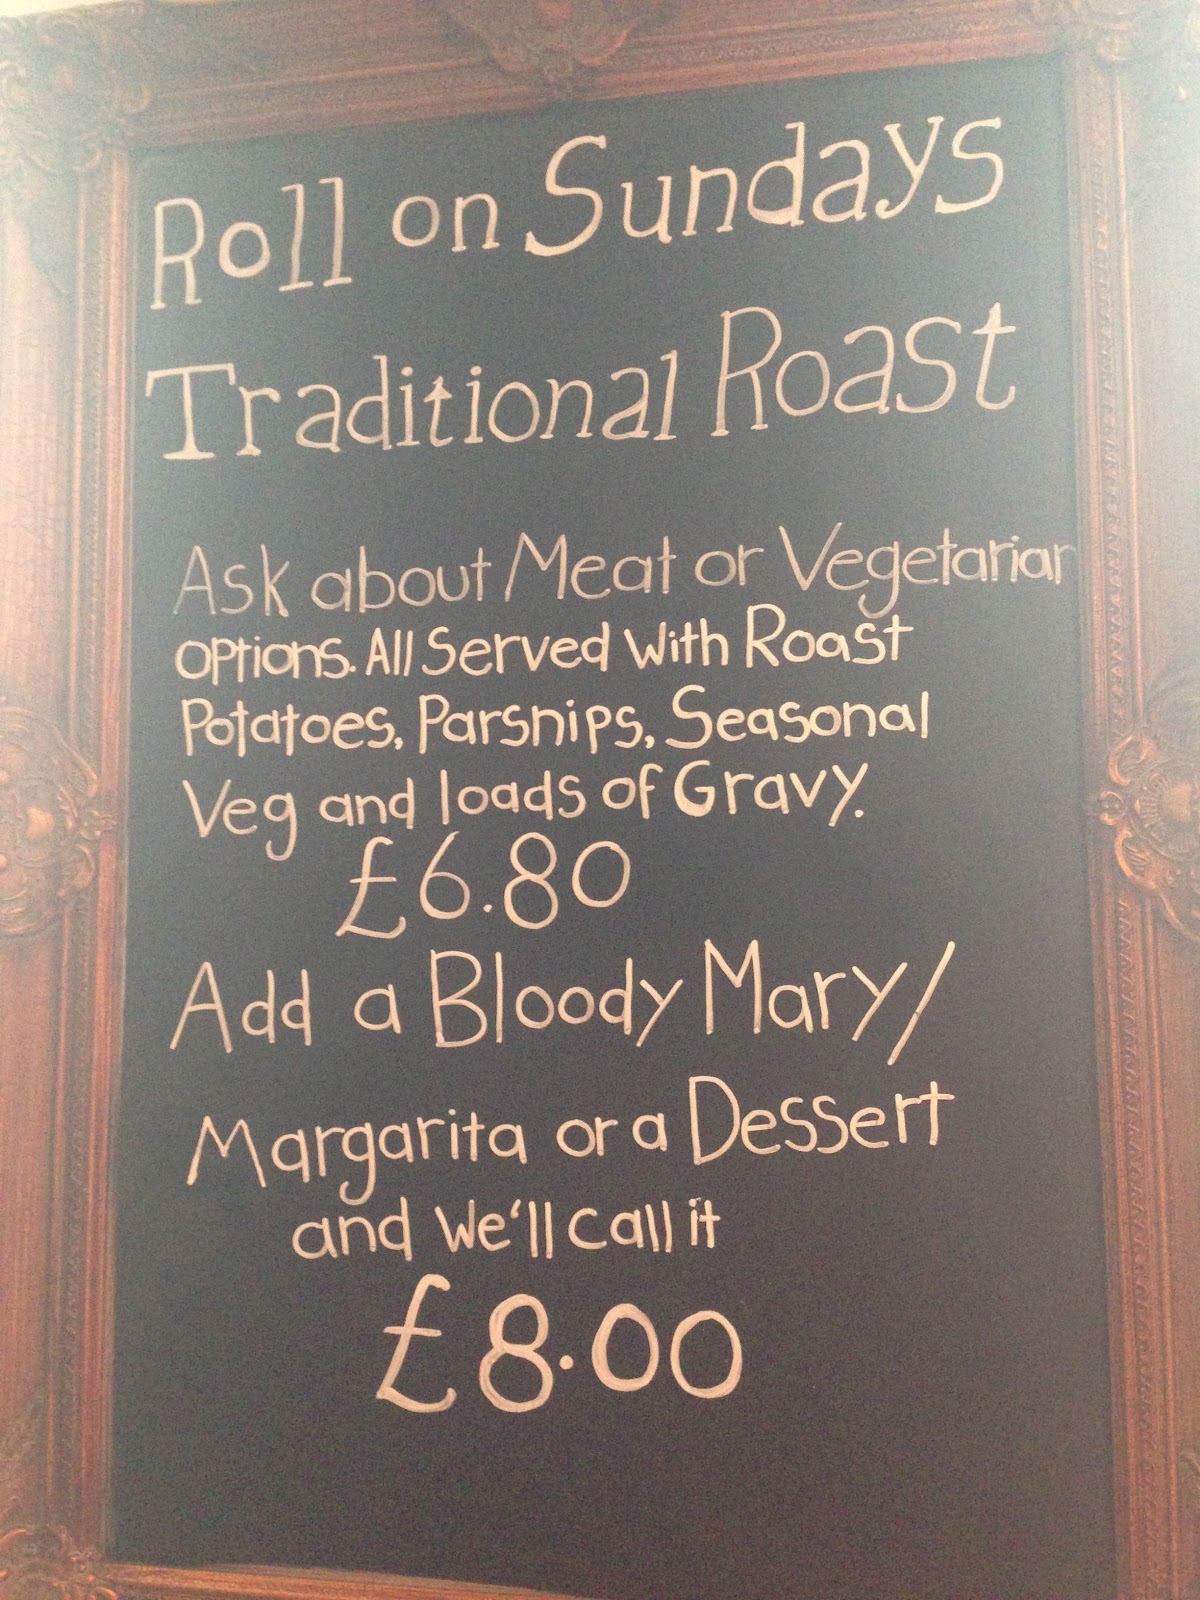 Roll on Sundays
Traditional Roast
Ask about Meat or Vegetarian
options. All Served with Roast
Potatoes, Parsnips, Seasonal
Veg and loads of Gravy.
£6.80
Add a Bloody Mary/
Margarita or a Dessert
and we'll call it
£8.00